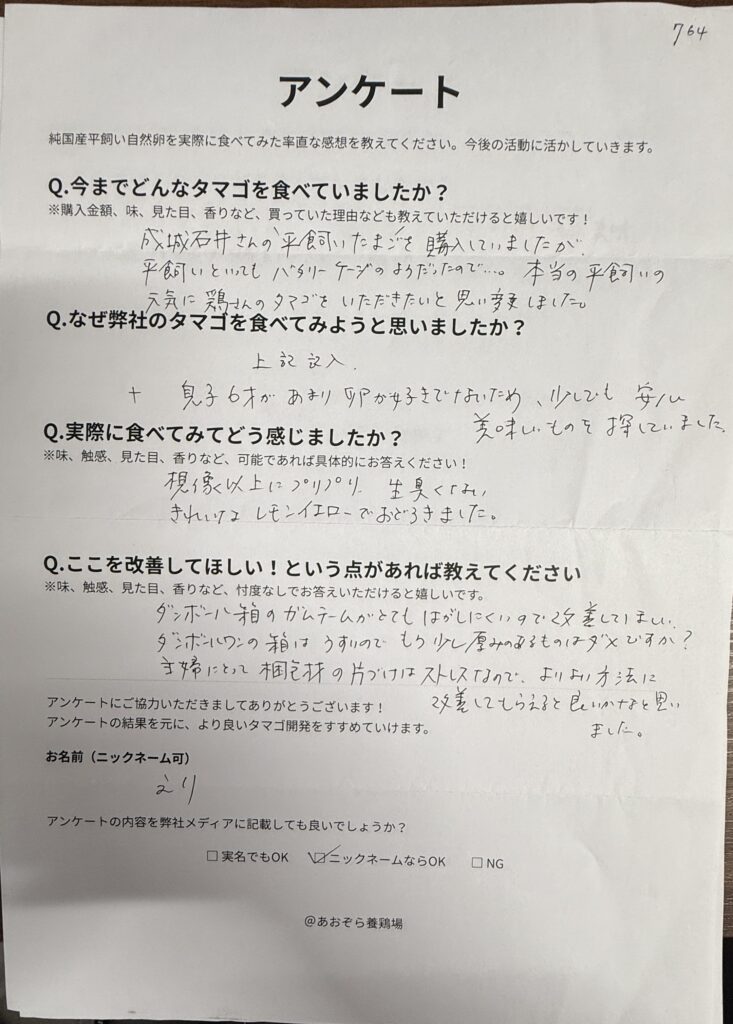 764
アンケート
純国産平飼い自然卵を実際に食べてみた率直な感想を教えてください。今後の活動に活かしていきます。
Q.今までどんなタマゴを食べていましたか？
※購入金額、味、見た目、香りなど、買っていた理由なども教えていただけると嬉しいです！
成城石井さんの平飼いたまごを購入していましたが、
平飼いといっても バタリーケージのようだったので…。本当の平飼いの
元気に鶏さんのタマゴをいただきたいと思い変えました。
Q.なぜ弊社のタマゴを食べてみようと思いましたか？
上記記入、
+ 息子6才があまり卵が好きでないため、少しでも安心
美味しいものを探していました。
Q.実際に食べてみてどう感じましたか？
※味、触感、見た目、香りなど、可能であれば具体的にお答えください！
想像以上にプリプリ、生臭くない
きれいなレモンイエローでおどろきました。
Q.ここを改善してほしい！という点があれば教えてください
※味、触感、見た目、香りなど、忖度なしでお答えいただけると嬉しいです。
ダンボール箱のガムテームがとてもはがしにくいので改善してほしい。
ダンボールワンの箱はうすいのでもう少し厚みのあるものはダメですか？
主婦にとって梱包材の片づけはストレスなので、よりよい方法に
改善してもらえると良いかなと思い
ました。
アンケートにご協力いただきましてありがとうございます！
アンケートの結果を元に、より良いタマゴ開発をすすめていけます。
お名前（ニックネーム可）
えり
アンケートの内容を弊社メディアに記載しても良いでしょうか？
□ 実名でもOK ☑ ニックネームならOK □ NG
@あおぞら養鶏場